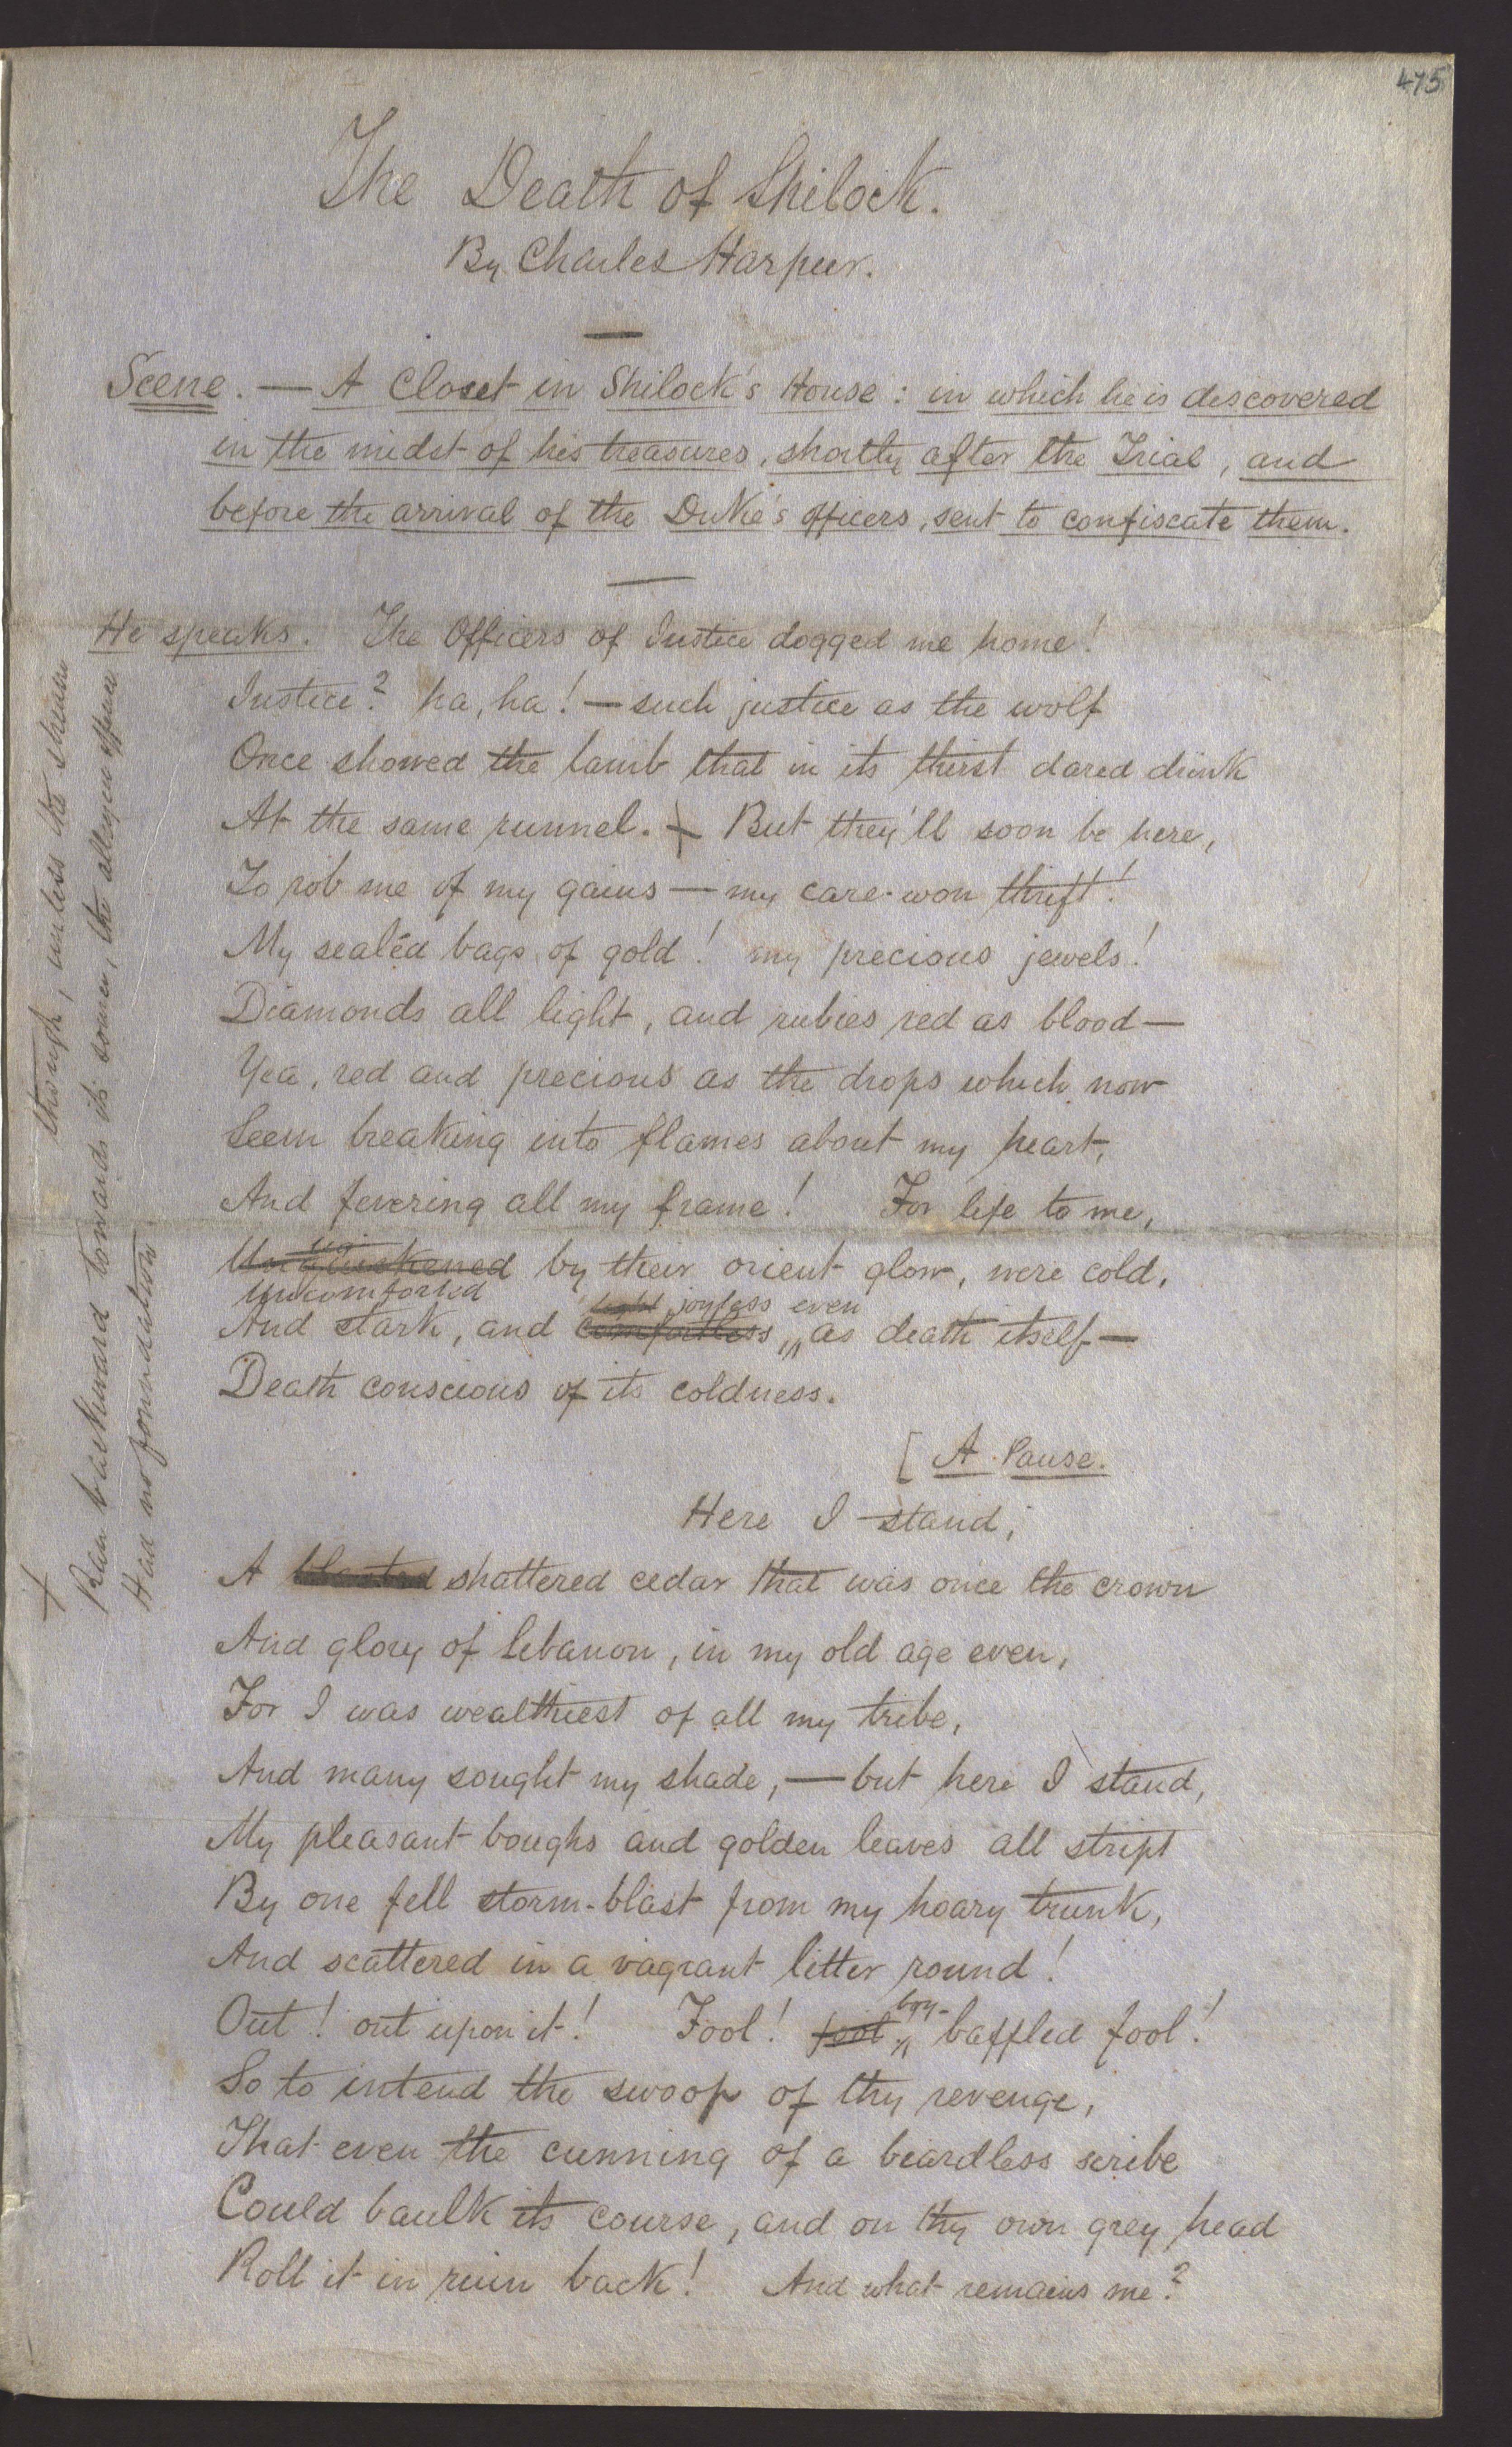 475
The Death of Shilock.
By Charles Harpur.
Scene. — A Closet in Shilock's House: in which he is discovered
in the midst of his treasures, shortly after the Trial, and
before the arrival of the Duke's officers, sent to confiscate them.
He speaks. The Officers of Justice dogged me home!
Justice? ha, ha! — such justice as the wolf
Once showed the lamb that in its thirst dared drink
At the same runnel. + But they'll soon be here,
To rob me of my gains — my care-won thrift!
My sealéd bags of gold! my precious jewels!
Diamonds all light, and rubies red as blood —
Yea, red and precious as the drops which now
Seem breaking into flames about my heart,
And fevering all my frame! For life to me,
Unquickened by their orient glow, were cold,
Uncomforted
light joyless even
And stark, and comfortless, as death itself —
Death conscious of its coldness.
[ A Pause.
Here I stand,
A blasted shattered cedar that was once the crown
And glory of Lebanon, in my old age even,
For I was wealthiest of all my tribe,
And many sought my shade, — but here I stand,
My pleasant boughs and golden leaves all stript
By one fell storm-blast from my hoary trunk,
And scattered in a vagrant litter round!
boy-
Out! out upon it! Fool! fool baffled fool!
So to intend the swoop of thy revenge,
That even the cunning of a beardless scribe
Could baulk its course, and on thy own grey head
Roll it in ruin back! And what remains me?
+ though, unless the stream
Ran backward towards its source, the alleged offence
Had no foundation.